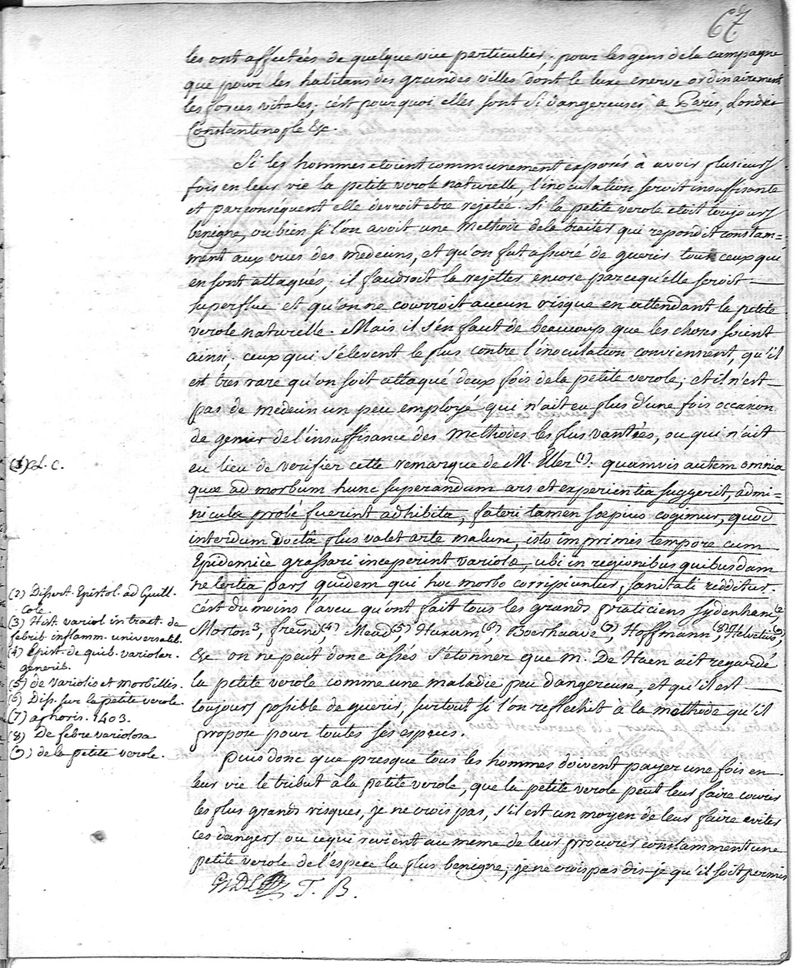 67
les ont affectées de quelque vice particulier. pour les gens de la campagne
que pour les habitans des grandes villes dont le luxe enerve ordinairement
les forces vitales; c'est pourquoi elles sont si dangereuses à Paris, Londres
Constantinople &c.
Si les hommes etoient communement exposés à avoir plusieurs
fois en leur vie la petite verole naturelle, l'inoculation seroit insuffisante
et par conséquent elle devroit etre rejetée. Si la petite verole etoit toujours
benigne, ou bien si l'on avoit une Methode de la traiter qui repondit constam=
ment aux vues des medecins, et qu'on fut assuré de guerir tout ceux qui
en sont attaqués; il faudroit la rejetter encore parcequ'elle seroit
superflue et qu'on ne courroit aucun risque en attendant la petite
verole naturelle. Mais il s'en faut de beaucoup que les choses soient
ainsi. ceux qui s'elevent le plus contre l'inoculation conviennent, qu'il
est tres rare qu'on soit attaqué deux fois de la petite verole; et il n'est
pas de medecin un peu employé qui n'ait eu plus d'une fois occasion
de gemir de l'insuffisance des Methodes les plus vantées, ou qui n'ait
eu lieu de verifier cette remarque de M. Eller (1): quamvis autem omnia
quæ ad morbum hunc superandum ars et experientia suggerit, admi-
nicula probè fuerint adhibita, fateri tamen sæpius cogimur, quod
interdum doctâ plus valet arte malum, isto imprimes tempore cum
Epidemicè grassari inceperint variolæ, ubi in regionibus quibusdam
ne tertia pars quidem qui hoc morbo corripiuntur, sanitati redditur.
c'est du moins l'aveu qu'ont fait tous les grands praticiens Sydenham, (2)
Morton 3, freind (4) Mead (5) Huxam (6) Boerhaave (7), Hoffmann, (8) Helvetius, (9)
&c on ne peut donc assés s'étonner que M. De Haen ait regardé
la petite verole comme une maladie peu dangereuse, et qu'il est
toujours possible de guerir, surtout si l'on reflechit à la methode qu'il
propose pour toutes ses especes.
Puis donc que presque tous les hommes doivent payer une fois en
leur vie le tribut à la petite verole, que la petite verole peut leur faire courir
les plus grands risques, je ne crois pas, s'il est un moyen de leur faire eviter
ces dangers ou ce qui revient au meme de leur procurer constamment une
petite verole de l'espece la plus benigne, je ne crois pas dis-je qu'il soit permis
T. B.
(1) L. C.
(2) Dissert. Epistol. ad Guill.
cole.
(3) Hist. variol in tract. de
febrib inflamm. universabl.
(4) Epist. de quib. variolar.
generib.
(5) de Variolis et morbillis.
(6) Diss. sur la petite verole.
(7) aphoris. 1403.
(8) De febre variolosa
(9) de la petite verole.